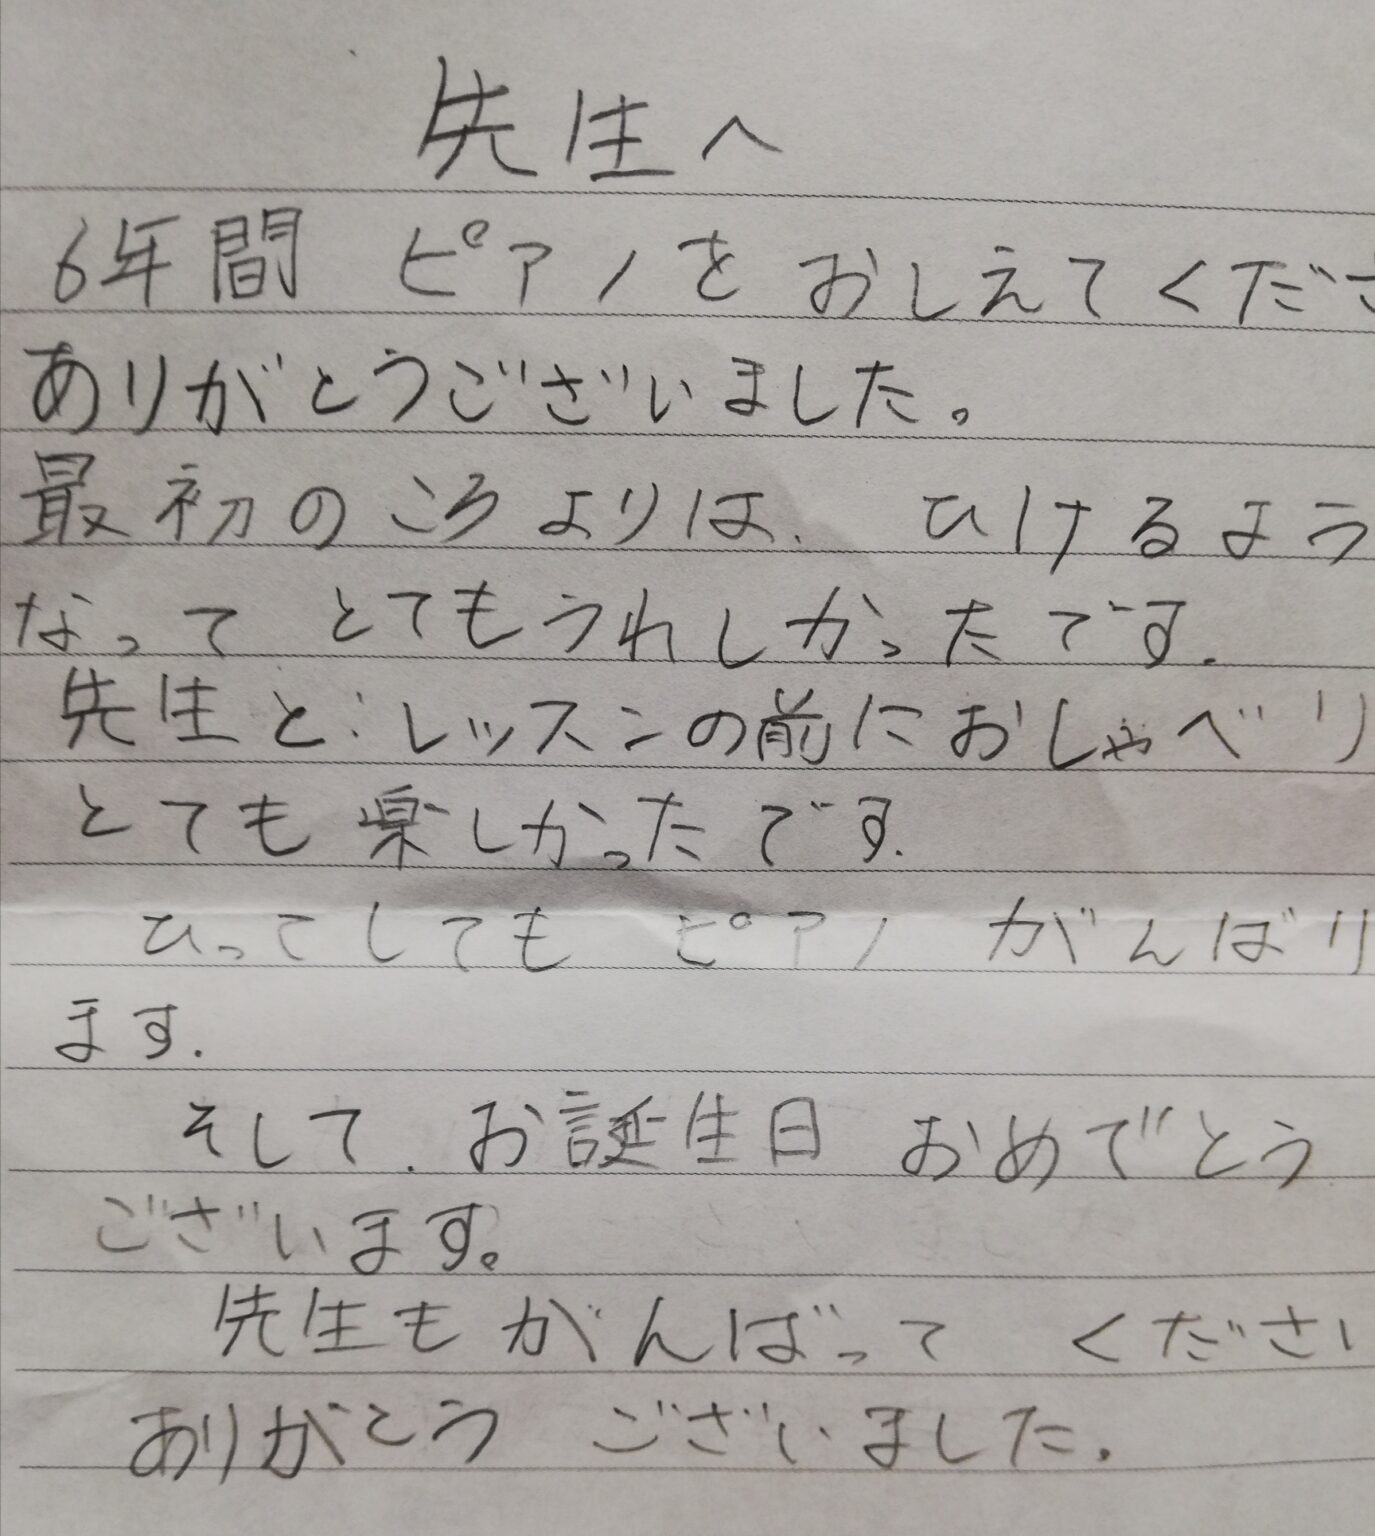 先生へ
6年間 ピアノを おしえてくださ
ありがとうございました。
最初のころよりは、 ひけるよう
なって とてもうれしかったです。
先生と レッスンの前におしゃべり
とても楽しかったです。
ひってしても ピアノ がんばり
ます。
そして、お誕生日 おめでとう
ございます。
先生も がんばって くださ
ありがとう ございました。